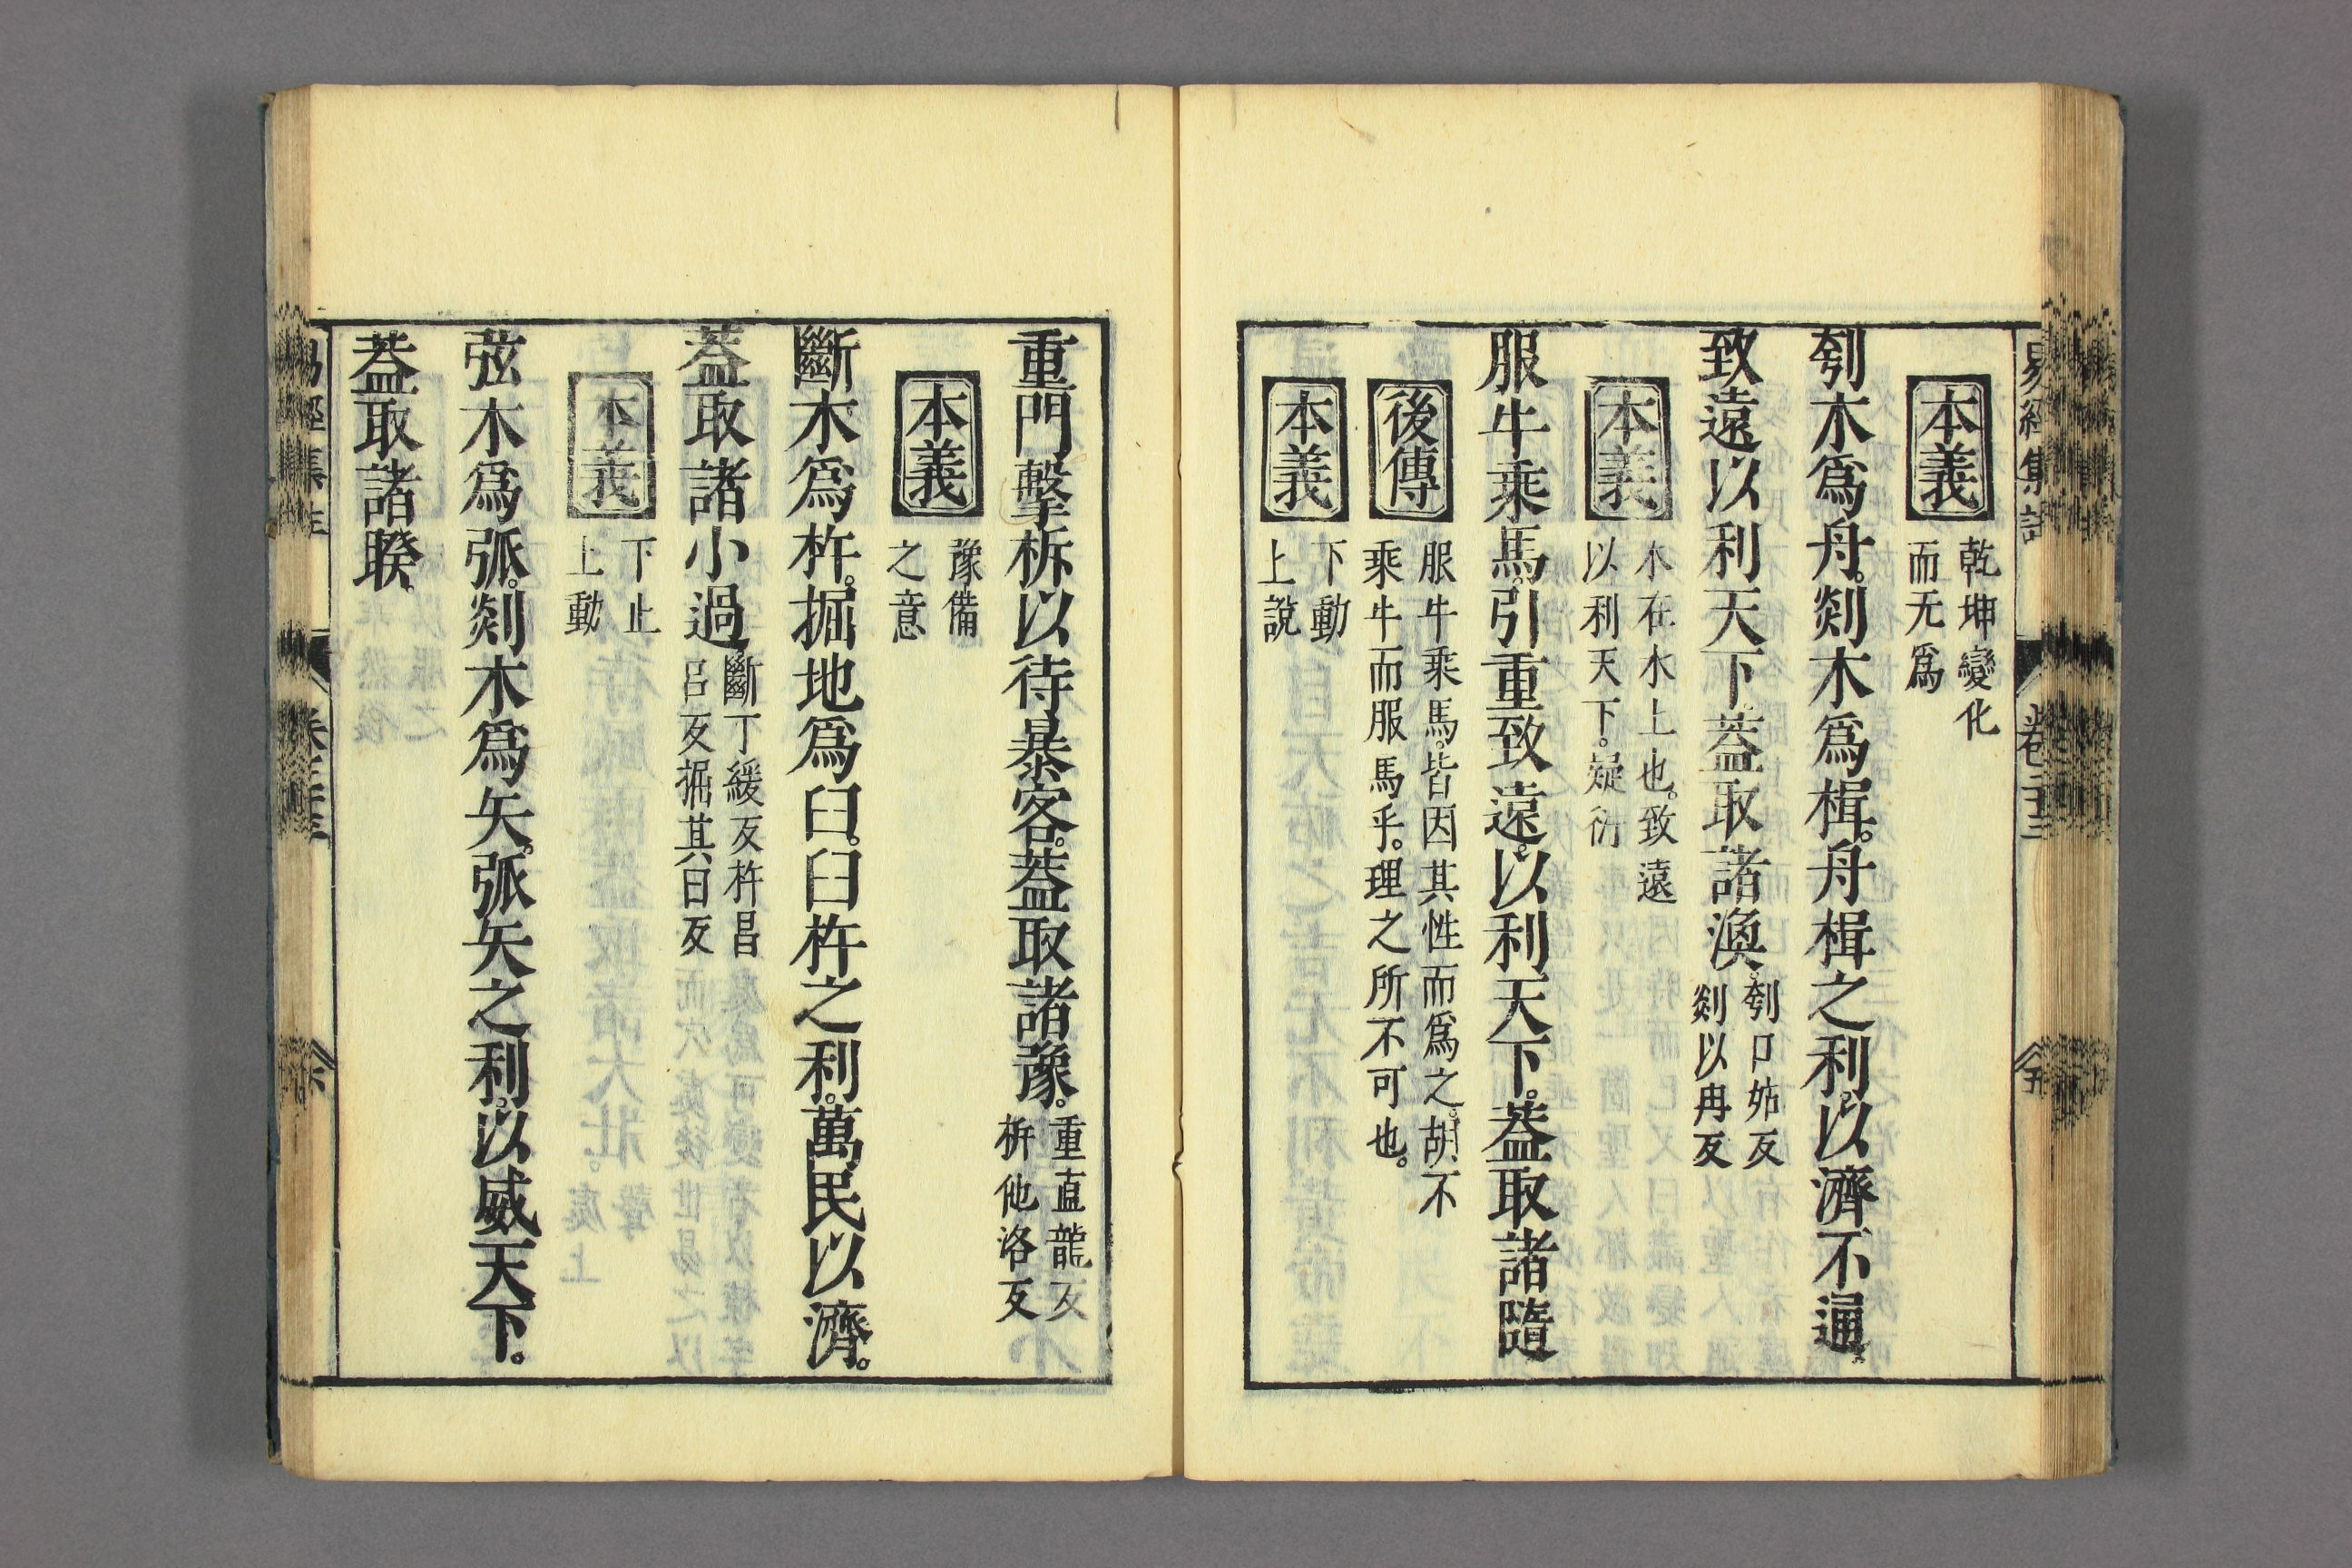 本義
乾坤變化
而无爲
刳木爲舟。剡木爲楫。舟楫之利。以濟不通。
致遠以利天下。蓋取諸渙。
刳口姑反
剡以冉反
本義
木在水上也。致遠
以利天下。疑衍
服牛乘馬。引重致遠。以利天下。蓋取諸隨
後傳
服牛乘馬。皆因其性而爲之。胡不
乘牛而服馬乎。理之所不可也。
本義
下動
上說
重門擊柝以待暴客。蓋取諸豫。
重直龍反
柝他洛反
本義
豫備
之意
斷木爲杵。掘地爲臼。臼杵之利。萬民以濟。
蓋取諸小過
斷丁緩反杵昌
呂反掘其曰反
本義
下止
上動
弦木爲弧。剡木爲矢。弧矢之利。以威天下。
蓋取諸睽。